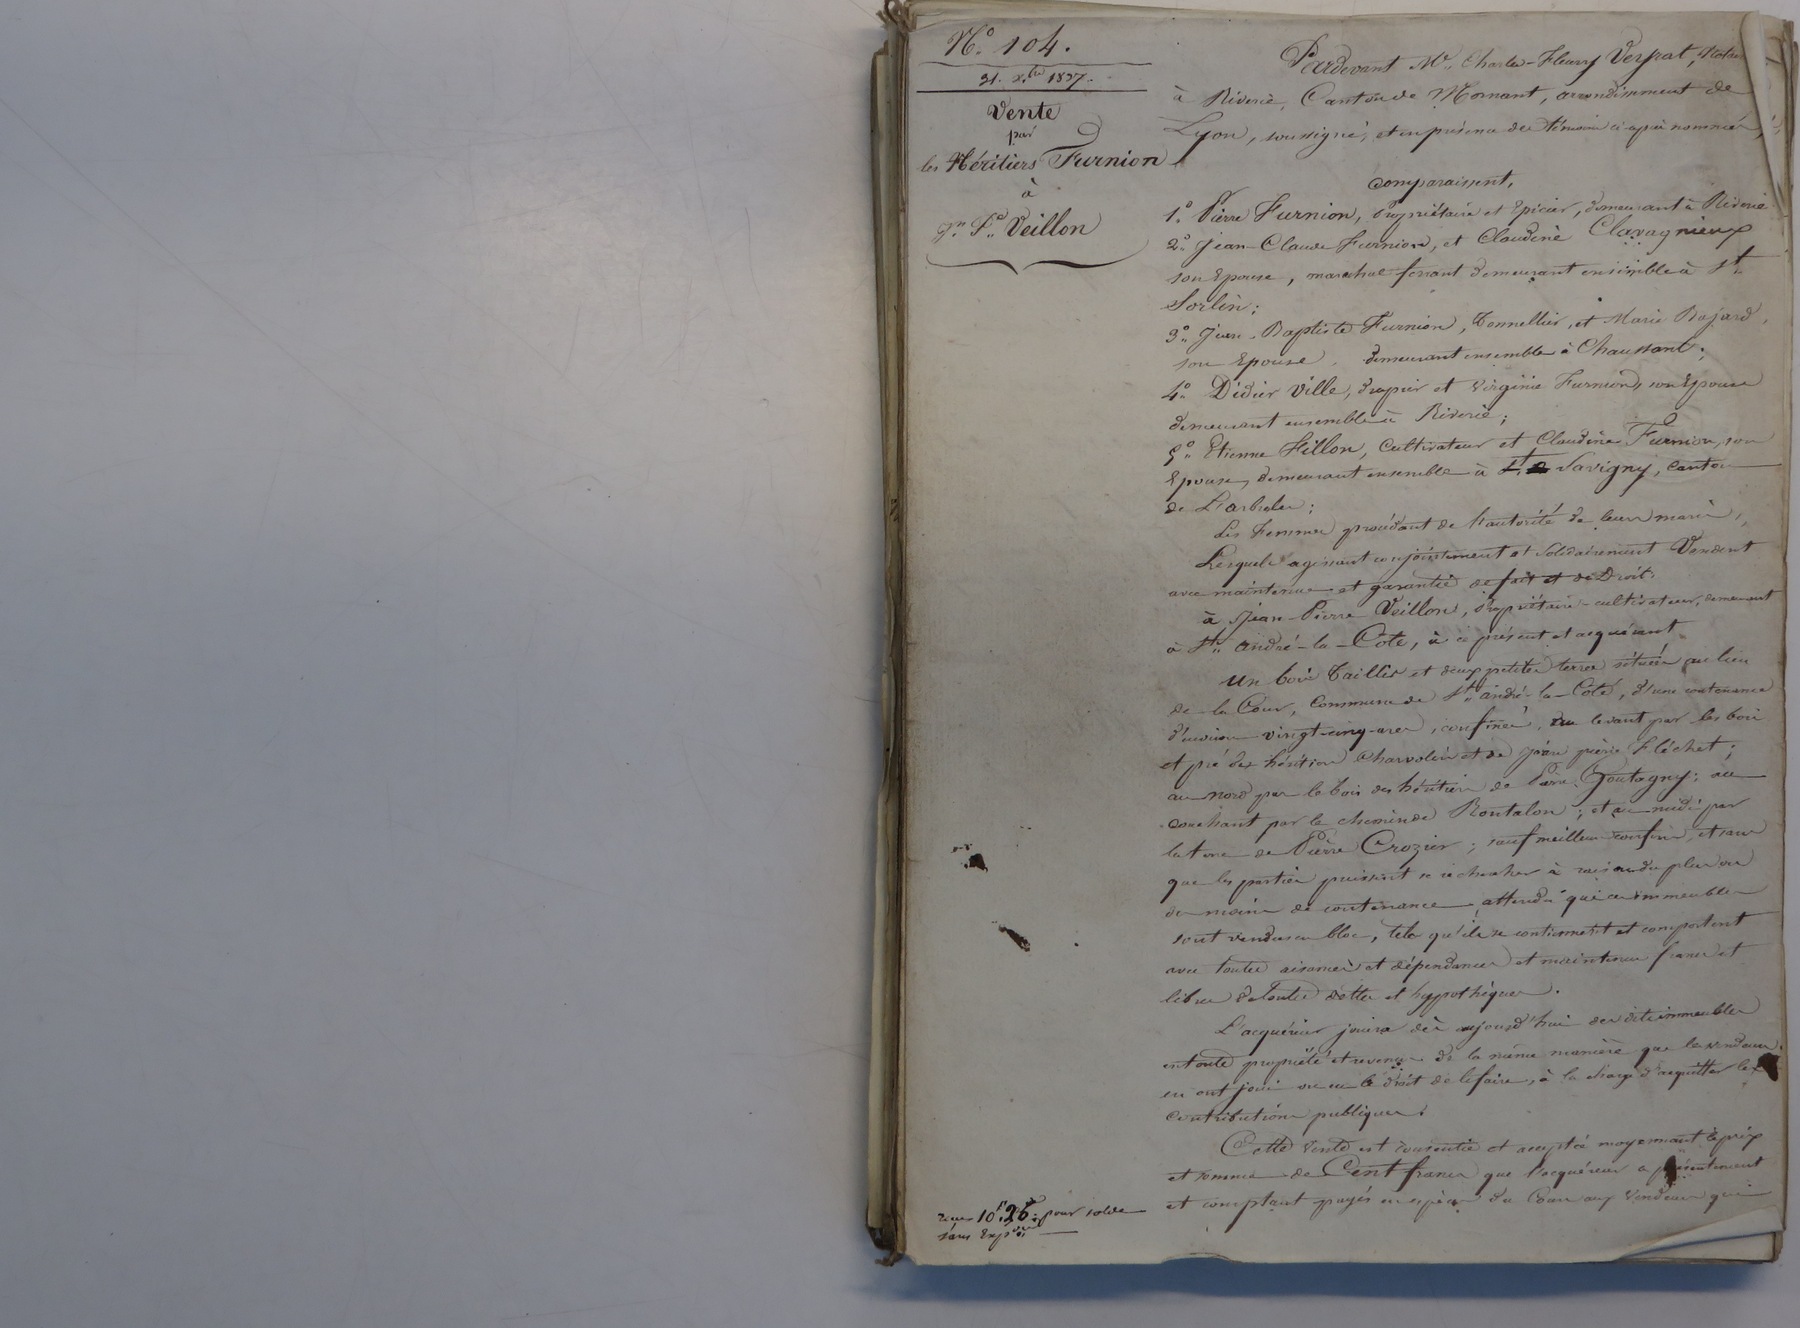 N.° 104.
31. X.bre 1837.
Vente
par
les Héritiers Furnion
à
Jn. Pre. Veillon
Pardevant Me. Charles-Fleury Veyrat, Notaire
à Riverie, Canton de Mornant, arrondissement de
Lyon, soussigné, et en présence des témoins ci-après nommés,
comparaissent,
1.° Pierre Furnion, propriétaire et Epicier, demeurant à Riverie
2.° Jean-Claude Furnion, et Claudine Clavagnieux
son Epouse, marechal ferrant demeurant ensemble à St.
Sorlin;
3.° Jean-Baptiste Furnion, Tonnellier, et Marie Bajard,
son Epouse, demeurant ensemble à Chaussant;
4.° Didier Ville, drapier et Virginie Furnion, son Epouse
demeurant ensemble à Riverie;
5.° Etienne Fillon, Cultivateur et Claudine Furnion, son
Epouse, demeurant ensemble à Savigny, canton
de L'arbresle;
Les Femmes procédant de l'autorité de leurs maris,
Lesquels agissant conjointement et solidairement Vendent
avec maintenue et garantie de fait et de Droit.
à Jean-Pierre Veillon, propriétaire-cultivateur, demeurant
à St. andré-la-Côte, à ce présent et acquérant
un bois Taillis et deux petites terres situées au lieu
de la Cour, Commune de St. andré-la-Côte, d'une contenance
d'environ vingt-cinq ares, confinés, au levant par les bois
et pré des héritiers Charvolin et de Jean pierre Fléchet;
au nord par le bois des héritiers de Pierre Goutagny; au
couchant par le chemin de Rontalon; et au midi par
la terre de Pierre Crozier; sauf meilleurs confins, et sans
que les parties puissent se rechercher à raison du plus ou
du moins de contenance, attendu que ces immeubles
sont vendus en bloc, tels qu'ils se contiennent et comportent
avec toutes aisances et dépendances et maintenus francs et
libres de toutes dettes et hypothèques.
L'acquéreur jouira dès aujourd'hui des dits immeubles
en toute propriété et revenus de la même manière que les vendeurs
en ont joui ou eu le droit de le faire, à la charge d'acquitter les
contributions publiques.
Cette vente est consentie et acceptée moyennant le prix
et somme de Cent francs que l'acquéreur a présentement
et comptant payés en espèces du Cours aux Vendeurs qui
reçu 10f. 26c. pour solde
sans Expon.